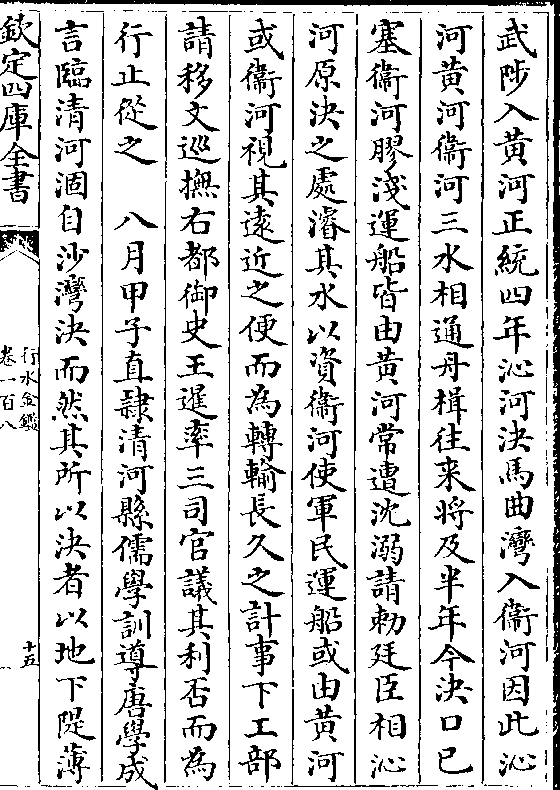 武陟入黄河正統四年沁河決馬曲灣入衞河因此沁
河黄河衞河三水相通舟楫往来將及半年今決口已
塞衞河膠淺運船皆由黄河常遭沈溺請勅廷臣相沁
河原決之處濬其水以資衞河使軍民運船或由黄河
或衞河視其遠近之便而為轉輸長久之計事下工部
請移文巡撫右都御史王暹率三司官議其利否而為
行止從之　八月甲子直隸清河縣儒學訓導唐學成
言臨清河涸自沙灣決而然其所以決者以地下隄薄
欽定四庫全書
行水金鑑
卷一百八
十五